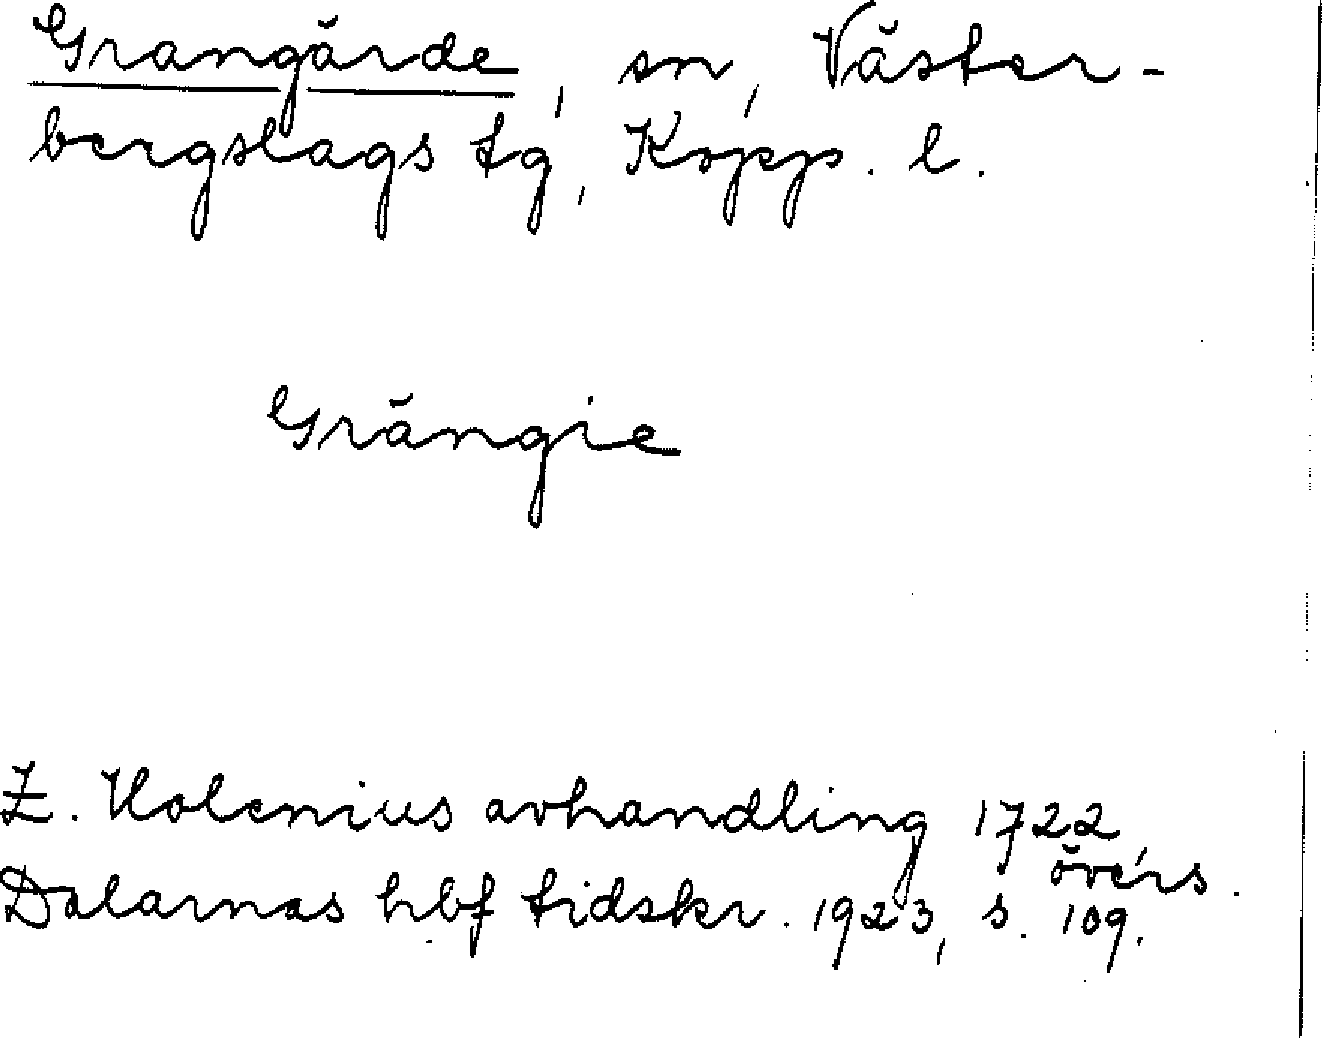 Grangärde, sn, Väster-
bergslags tg, Kopp. l.
Grängie
Z. Holenius avhandling 1722,
övers.
Dalarnas hbf tidskr. 1923, s. 109.